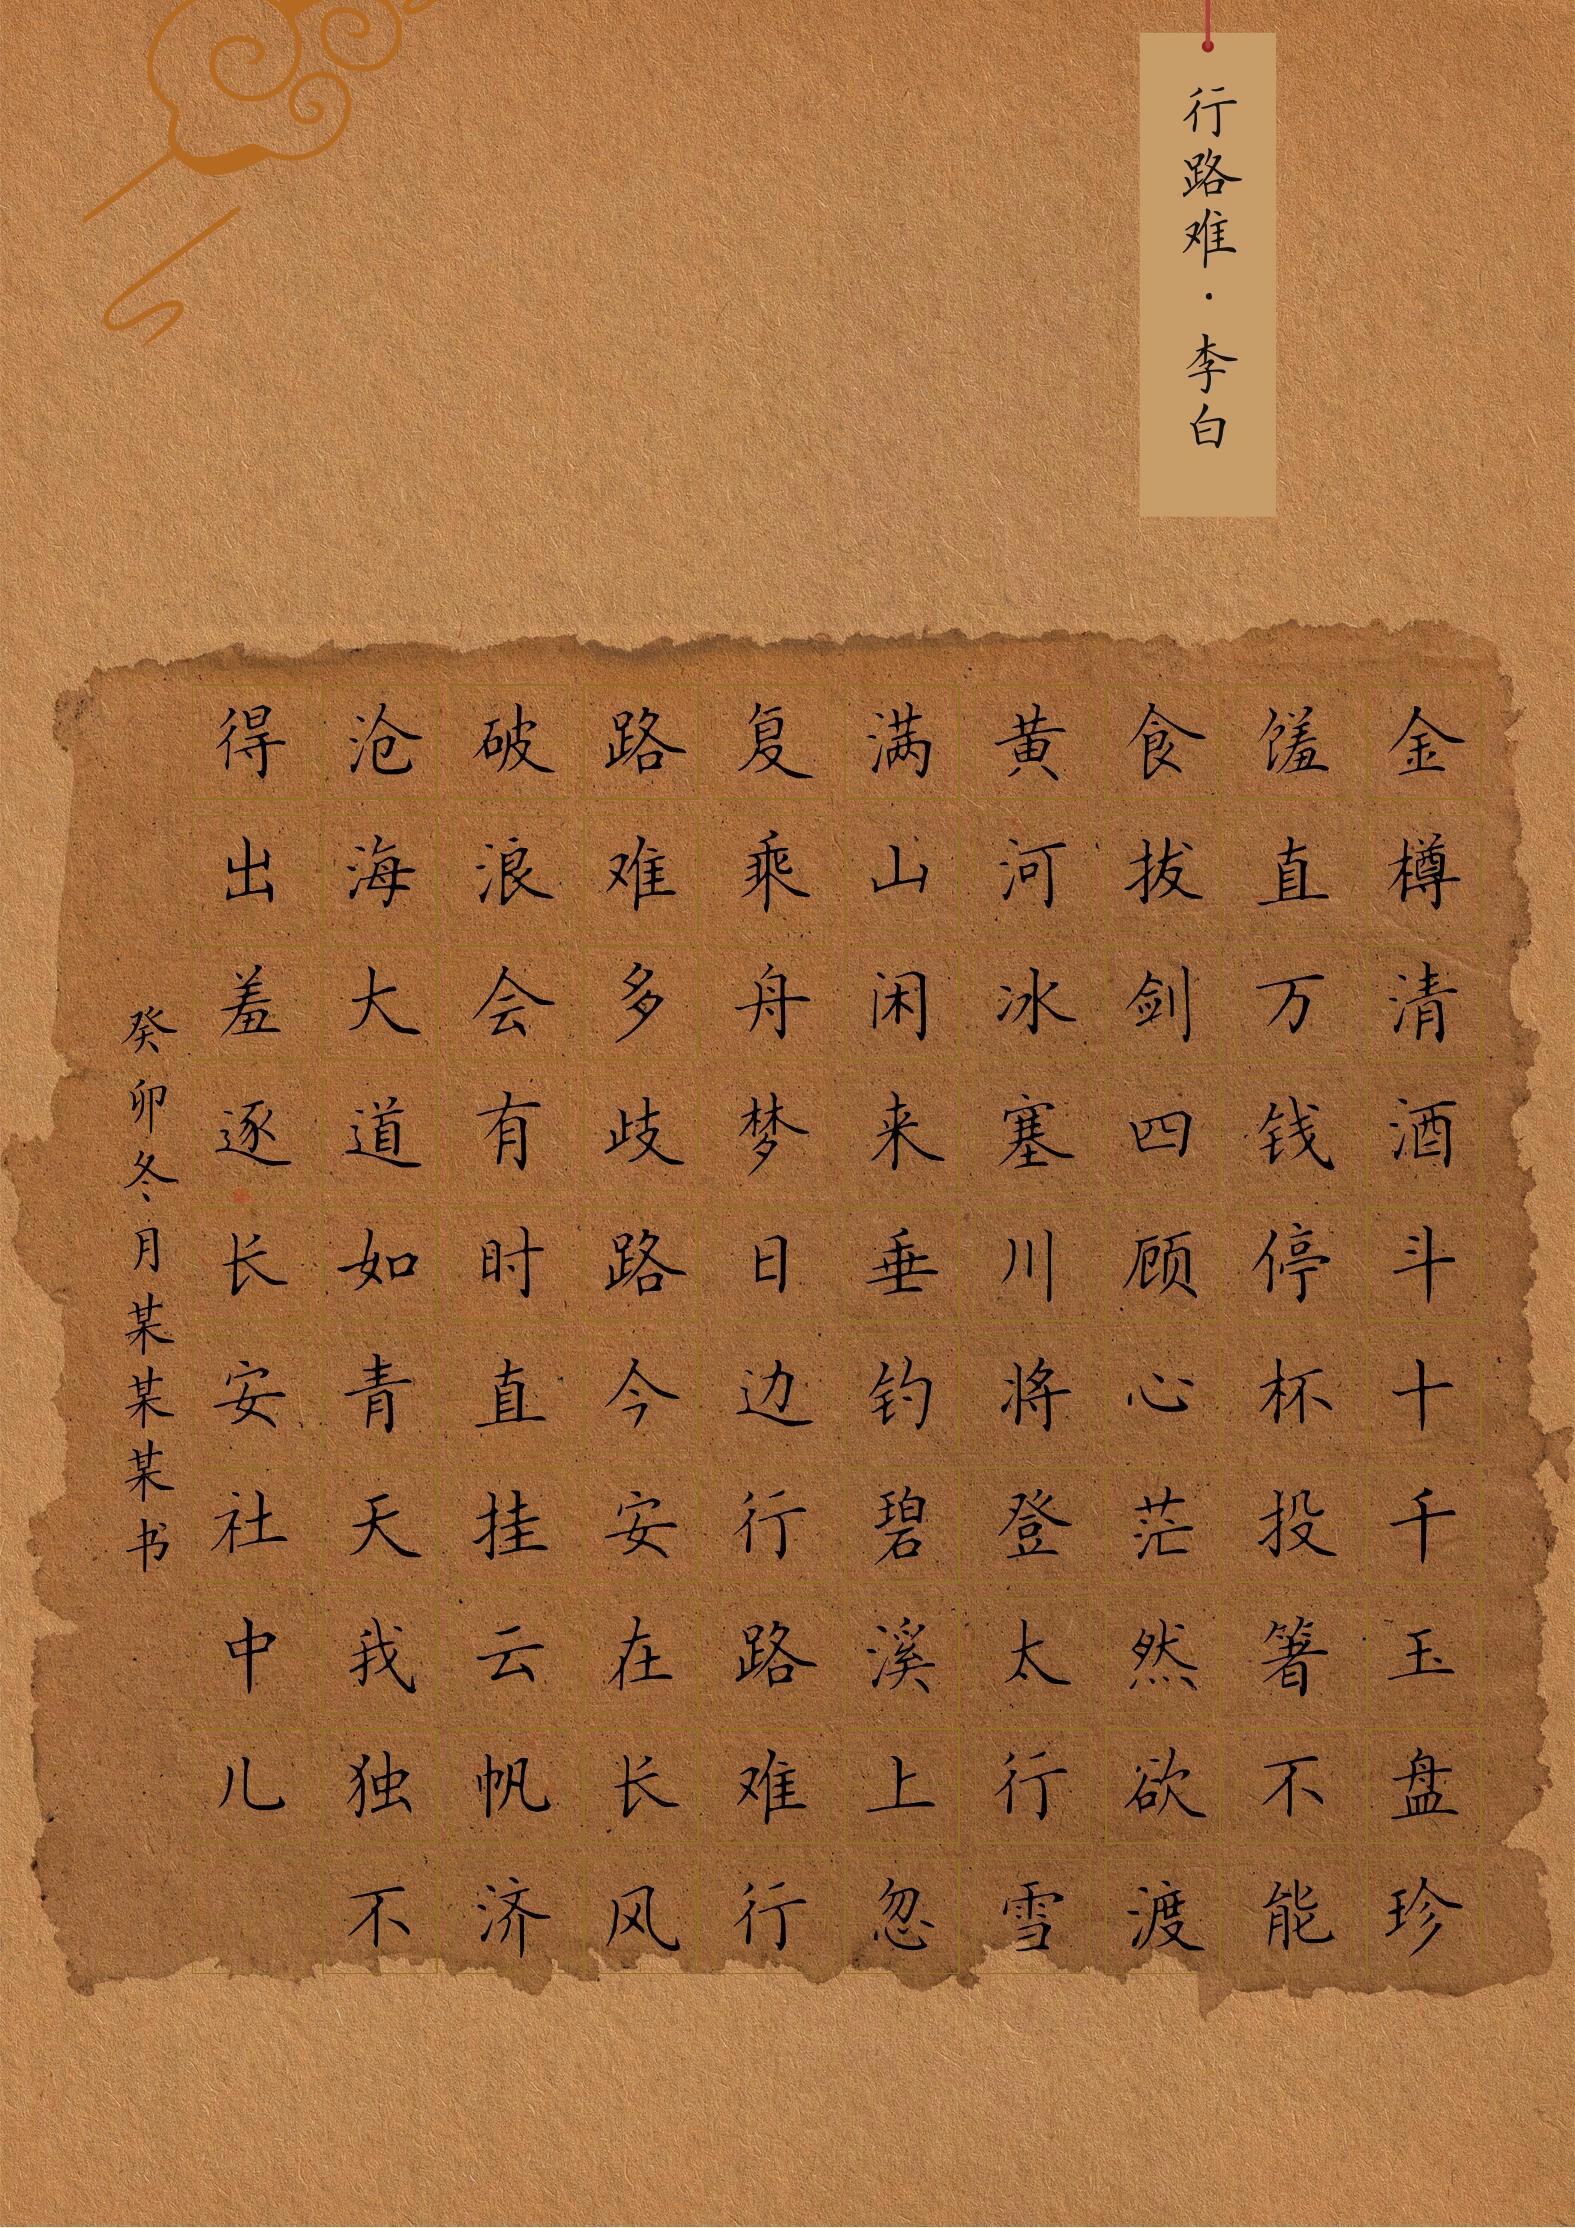 行路难·李白
金樽清酒斗十千玉盘珍
馐直万钱停杯投箸不能
食拔剑四顾心茫然欲渡
黄河冰塞川将登太行雪
满山闲来垂钓碧溪上忽
复乘舟梦日边行路难行
路难多歧路今安在长风
破浪会有时直挂云帆济
沧海大道如青天我独不
得出羞逐长安社中儿
癸卯冬月某某某书